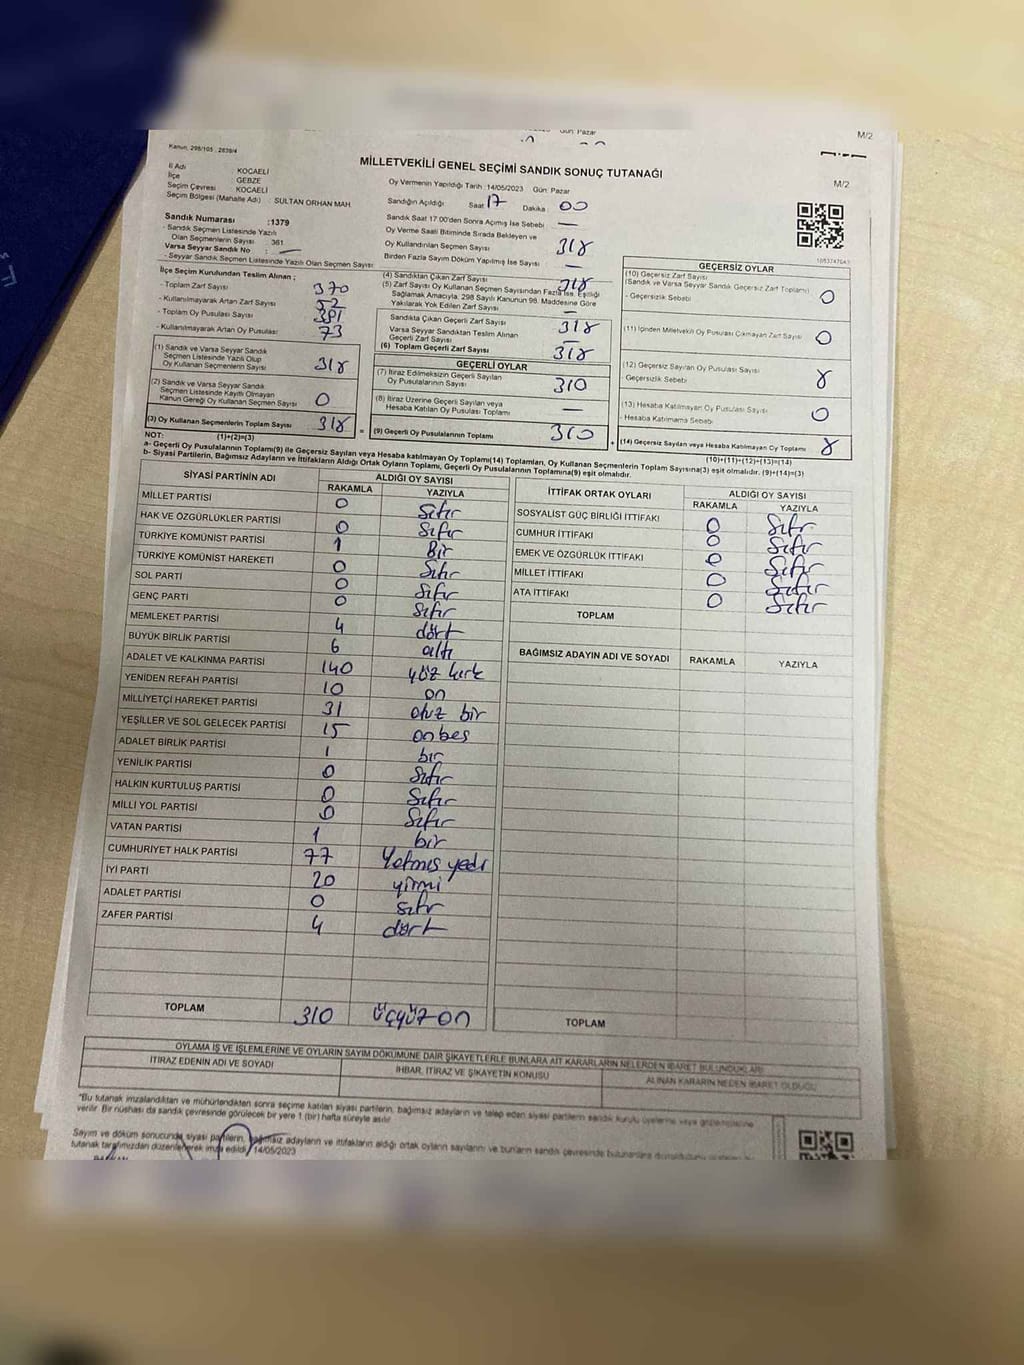 Gün: Pazar
M/2
Kanun: 298/105 , 2839/4
MİLLETVEKİLİ GENEL SEÇİMİ SANDIK SONUÇ TUTANAĞI
M/2
İl Adı : KOCAELİ
İlçe : GEBZE
Seçim Çevresi : KOCAELİ
Seçim Bölgesi (Mahalle Adı) : SULTAN ORHAN MAH
Sandık Numarası :1379
- Sandık Seçmen Listesinde Yazılı
Olan Seçmenlerin Sayısı : 361
Varsa Seyyar Sandık No : —
- Seyyar Sandık Seçmen Listesinde Yazılı Olan Seçmen Sayısı
Oy Vermenin Yapıldığı Tarih :14/05/2023 Gün: Pazar
Sandığın Açıldığı Saat 17 Dakika 00
Sandık Saat 17:00'den Sonra Açılmış İse Sebebi : —
Oy Verme Saati Bitiminde Sırada Bekleyen ve
Oy Kullandırılan Seçmen Sayısı 318
Birden Fazla Sayım Döküm Yapılmış İse Sayısı : —
İlçe Seçim Kurulundan Teslim Alınan ;
- Toplam Zarf Sayısı 370
- Kullanılmayarak Artan Zarf Sayısı 52
- Toplam Oy Pusulası Sayısı
- Kullanılmayarak Artan Oy Pusulası 73
(4) Sandıktan Çıkan Zarf Sayısı 318
(5) Zarf Sayısı Oy Kullanan Seçmen Sayısından Fazla ise, Eşitliği
Sağlamak Amacıyla, 298 Sayılı Kanunun 98. Maddesine Göre
Yakılarak Yok Edilen Zarf Sayısı —
Sandıkta Çıkan Geçerli Zarf Sayısı 318
Varsa Seyyar Sandıktan Teslim Alınan
Geçerli Zarf Sayısı —
(6) Toplam Geçerli Zarf Sayısı 318
(1) Sandık ve Varsa Seyyar Sandık
Seçmen Listesinde Yazılı Olup
Oy Kullanan Seçmenlerin Sayısı 318
(2) Sandık ve Varsa Seyyar Sandık
Seçmen Listesinde Kayıtlı Olmayan
Kanun Gereği Oy Kullanan Seçmen Sayısı 0
(3) Oy Kullanan Seçmenlerin Toplam Sayısı 318
(1)+(2)=(3)
GEÇERLİ OYLAR
(7) İtiraz Edilmeksizin Geçerli Sayılan
Oy Pusulalarının Sayısı 310
(8) İtiraz Üzerine Geçerli Sayılan veya
Hesaba Katılan Oy Pusulası Toplamı —
= (9) Geçerli Oy Pusulalarının Toplamı 310
GEÇERSİZ OYLAR
(10) Geçersiz Zarf Sayısı
(Sandık ve Varsa Seyyar Sandık Geçersiz Zarf Toplamı) 0
- Geçersizlik Sebebi
(11) İçinden Milletvekili Oy Pusulası Çıkmayan Zarf Sayısı 0
(12) Geçersiz Sayılan Oy Pusulası Sayısı 8
- Geçersizlik Sebebi
(13) Hesaba Katılmayan Oy Pusulası Sayısı 0
- Hesaba Katılmama Sebebi
+ (14) Geçersiz Sayılan veya Hesaba Katılmayan Oy Toplamı 8
(10)+(11)+(12)+(13)=(14)
NOT:
a- Geçerli Oy Pusulalarının Toplamı(9) ile Geçersiz Sayılan veya Hesaba katılmayan Oy Toplamı(14) Toplamları, Oy Kullanan Seçmenlerin Toplam Sayısına(3) eşit olmalıdır. (9)+(14)=(3)
b- Siyasi Partilerin, Bağımsız Adayların ve İttifakların Aldığı Ortak Oyların Toplamı, Geçerli Oy Pusulalarının Toplamına(9) eşit olmalıdır.
SİYASİ PARTİNİN ADI ALDIĞI OY SAYISI
RAKAMLA YAZIYLA
MİLLET PARTİSİ 0 Sıfır
HAK VE ÖZGÜRLÜKLER PARTİSİ 0 Sıfır
TÜRKİYE KOMÜNİST PARTİSİ 1 Bir
TÜRKİYE KOMÜNİST HAREKETİ 0 Sıfır
SOL PARTİ 0 Sıfır
GENÇ PARTİ 0 Sıfır
MEMLEKET PARTİSİ 4 dört
BÜYÜK BİRLİK PARTİSİ 6 altı
ADALET VE KALKINMA PARTİSİ 140 yüz kırk
YENİDEN REFAH PARTİSİ 10 on
MİLLİYETÇİ HAREKET PARTİSİ 31 otuz bir
YEŞİLLER VE SOL GELECEK PARTİSİ 15 onbeş
ADALET BİRLİK PARTİSİ 1 bir
YENİLİK PARTİSİ 0 Sıfır
HALKIN KURTULUŞ PARTİSİ 0 Sıfır
MİLLİ YOL PARTİSİ 0 Sıfır
VATAN PARTİSİ 1 bir
CUMHURİYET HALK PARTİSİ 77 Yetmiş yedi
İYİ PARTİ 20 yirmi
ADALET PARTİSİ 0 sıfır
ZAFER PARTİSİ 4 dört
TOPLAM 310 üçyüz on
İTTİFAK ORTAK OYLARI ALDIĞI OY SAYISI
RAKAMLA YAZIYLA
SOSYALİST GÜÇ BİRLİĞİ İTTİFAKI 0 Sıfır
CUMHUR İTTİFAKI 0 Sıfır
EMEK VE ÖZGÜRLÜK İTTİFAKI 0 Sıfır
MİLLET İTTİFAKI 0 Sıfır
ATA İTTİFAKI 0 Sıfır
TOPLAM
BAĞIMSIZ ADAYIN ADI VE SOYADI RAKAMLA YAZIYLA
TOPLAM
OYLAMA İŞ VE İŞLEMLERİNE VE OYLARIN SAYIM DÖKÜMÜNE DAİR ŞİKAYETLERLE BUNLARA AİT KARARLARIN NELERDEN İBARET BULUNDUKLARI
İTİRAZ EDENİN ADI VE SOYADI İHBAR, İTİRAZ VE ŞİKAYETİN KONUSU ALINAN KARARIN NEDEN İBARET OLDUĞU
"Bu tutanak imzalandıktan ve mühürlendikten sonra seçime katılan siyasi partilerin, bağımsız adayların ve talep eden siyasi partilerin sandık kurulu üyelerine veya gözlemcilerine
verilir. Bir nüshası da sandık çevresinde görülecek bir yere 1 (bir) hafta süreyle asılır.
Sayım ve döküm sonucunda siyasi partilerin, bağımsız adayların ve ittifakların aldığı ortak oyların sayılarını ve bunların sandık çevresinde
tutanak tarafımızdan düzenlenerek imza edildi. 14/05/2023